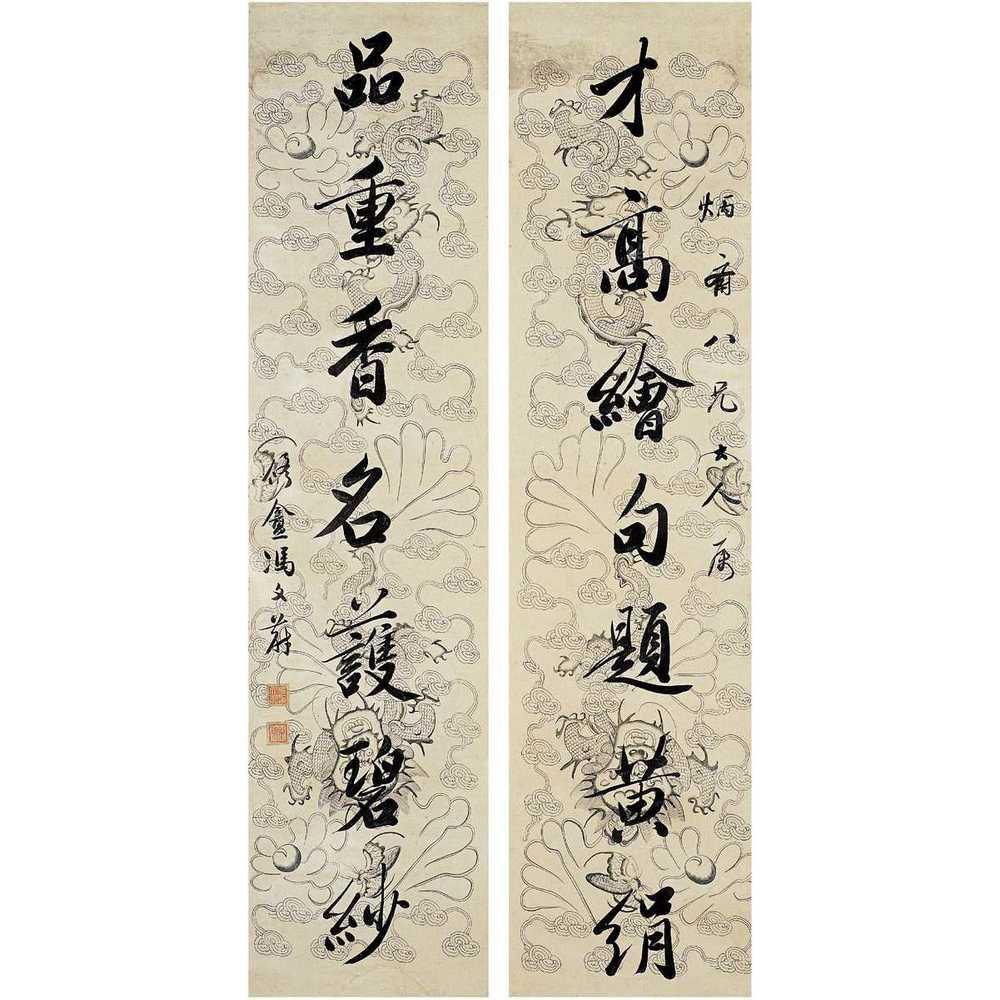 才高繪句題黃絹
炳齋八兄大人属
品重香名護碧紗
修盦馮文蔚